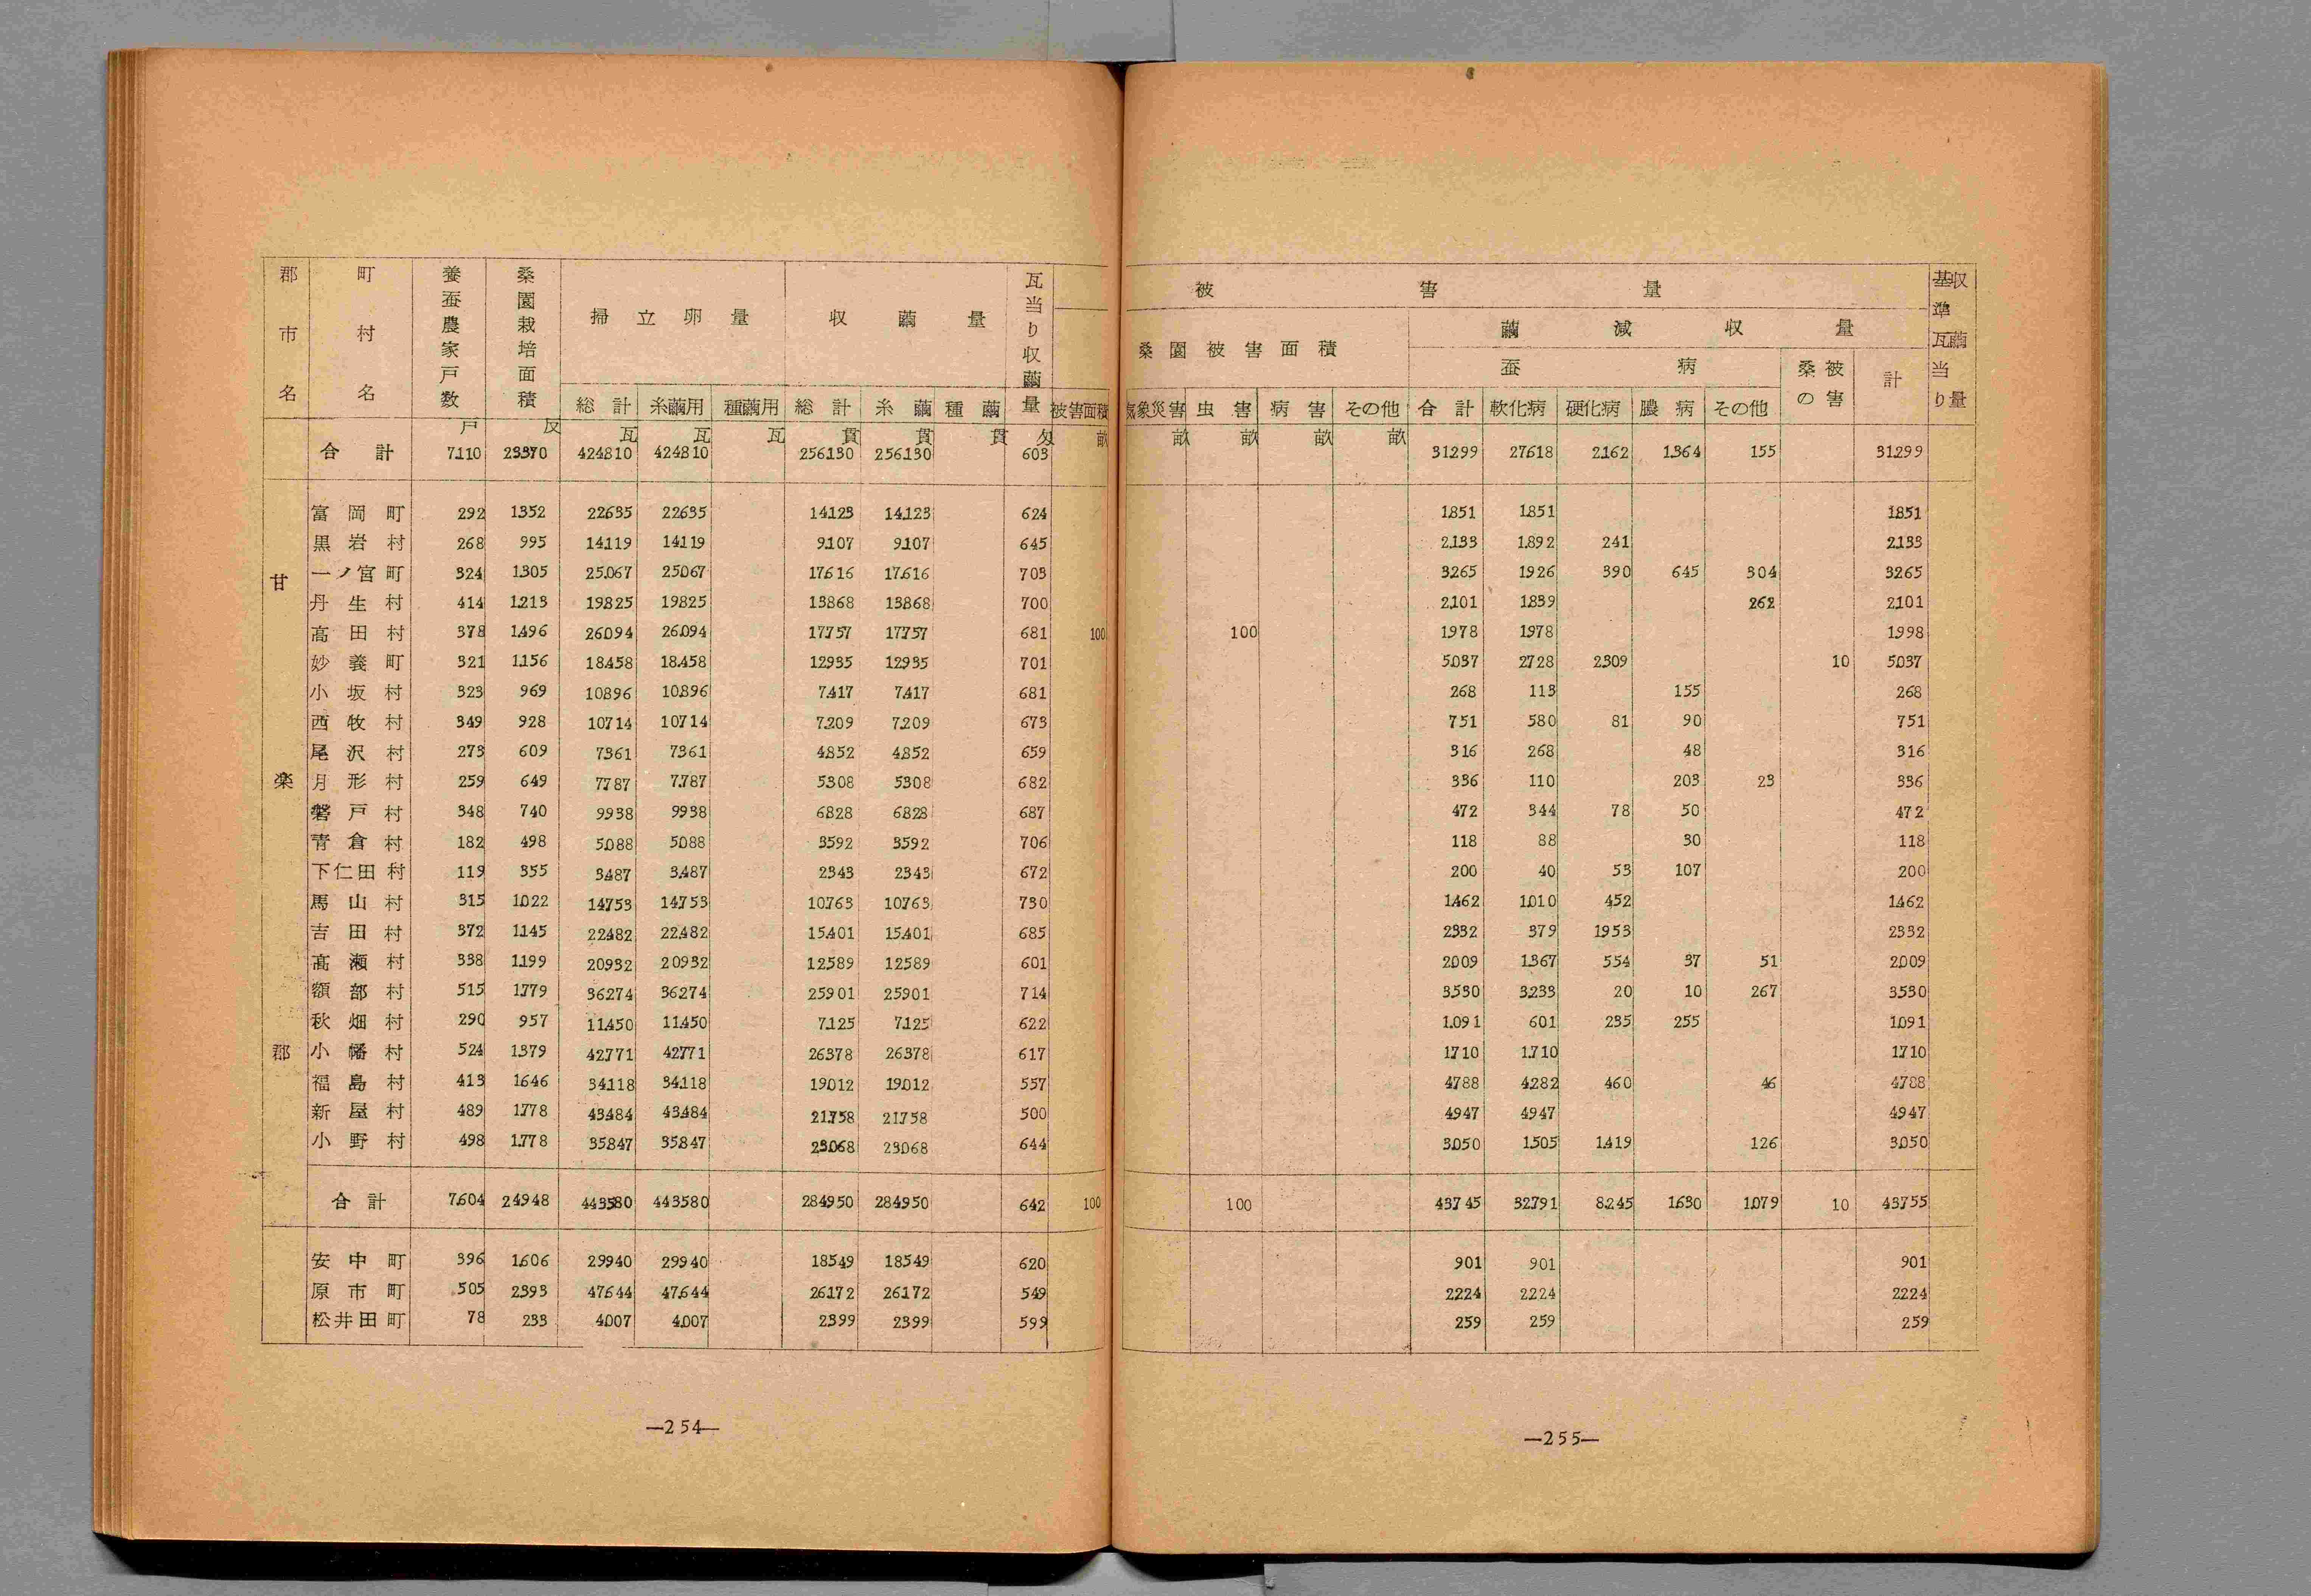 郡市名 町村名 養蚕農家戸数 桑園栽培面積 掃立卵量 収繭量 瓦当り収繭量
総計 糸繭用 種繭用 総計 糸繭 種繭 被害面積
戸 反 瓦 瓦 瓦 貫 貫 貫 匁 畝
合計 7110 23370 424810 424810 256130 256130 603
甘楽郡
富岡町 292 1352 22635 22635 14123 14123 624
黒岩村 268 995 14119 14119 9107 9107 645
一ノ宮町 324 1305 25067 25067 17616 17616 703
丹生村 414 1213 19825 19825 13868 13868 700
高田村 378 1496 26094 26094 17757 17757 681 100
妙義町 321 1156 18458 18458 12935 12935 701
小坂村 323 969 10896 10896 7417 7417 681
西牧村 349 928 10714 10714 7209 7209 673
尾沢村 273 609 7361 7361 4852 4852 659
月形村 259 649 7787 7787 5308 5308 682
磐戸村 348 740 9938 9938 6828 6828 687
青倉村 182 498 5088 5088 3592 3592 706
下仁田村 119 355 3487 3487 2343 2343 672
馬山村 315 1022 14753 14753 10763 10763 730
吉田村 372 1145 22482 22482 15401 15401 685
高瀬村 338 1199 20932 20932 12589 12589 601
額部村 515 1779 36274 36274 25901 25901 714
秋畑村 290 957 11450 11450 7125 7125 622
小幡村 524 1379 42771 42771 26378 26378 617
福島村 413 1646 34118 34118 19012 19012 557
新屋村 489 1778 43484 43484 21758 21758 500
小野村 498 1778 35847 35847 23068 23068 644
合計 7604 24948 443580 443580 284950 284950 642 100
安中町 396 1606 29940 29940 18549 18549 620
原市町 505 2393 47644 47644 26172 26172 549
松井田町 78 233 4007 4007 2399 2399 599
—254—
被害量 基準瓦当り収繭量
桑園被害面積 繭減収量
蚕病 桑の被害 計
気象災害 虫害 病害 その他 合計 軟化病 硬化病 膿病 その他
畝 畝 畝 畝
31299 27618 2162 1364 155 31299
1851 1851 1851
2133 1892 241 2133
3265 1926 390 645 304 3265
2101 1839 262 2101
100 1978 1978 1998
5037 2728 2309 10 5037
268 113 155 268
751 580 81 90 751
316 268 48 316
336 110 203 23 336
472 344 78 50 472
118 88 30 118
200 40 53 107 200
1462 1010 452 1462
2332 379 1953 2332
2009 1367 554 37 51 2009
3530 3233 20 10 267 3530
1091 601 235 255 1091
1710 1710 1710
4788 4282 460 46 4788
4947 4947 4947
3050 1505 1419 126 3050
100 43745 32791 8245 1630 1079 10 43755
901 901 901
2224 2224 2224
259 259 259
—255—